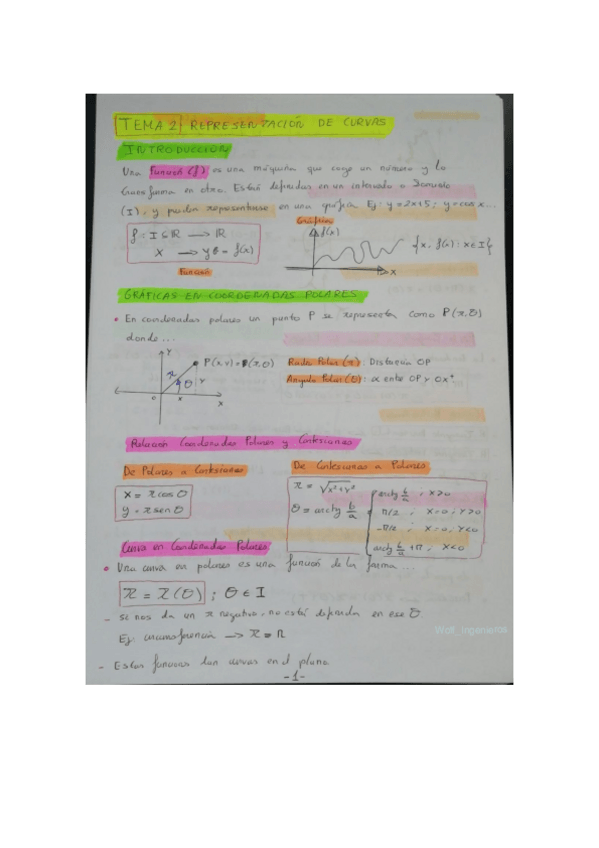 TEMA 2| REPRESENTACIÓN DE CURVAS
INTRODUCCION
Una función (f) es una máquina que coge un número y lo
transforma en otro. Están definidas en un intervalo o Dominio
(I), y pueden representarse en una gráfica Ej: y = 2x+5; y = cos x...
Gráfica
f: I ⊆ ℝ → ℝ
x → y = f(x)
Función
f(x)
x
{x, f(x): x ∈ I}
GRÁFICAS EN COORDENADAS POLARES
• En coordenadas polares un punto P se representa como P(r, θ)
donde...
y
P(x,y) = P(r,θ)
r
θ
y
o
x
x
Radio Polar (r): Distancia OP
Angulo Polar (θ): α entre OP y Ox⁺
Relación Coordenadas Polares y Cartesianas
De Polares a Cartesianas
x = r cos θ
y = r sen θ
De Cartesianas a Polares
r = √x²+y²
θ = arctg b/a
arctg b/a ; x>0
π/2 ; x=0; y>0
-π/2 ; x=0, y<0
arctg b/a +π; x<0
Curva en Coordenadas Polares
• Una curva en polares es una función de la forma...
r = r(θ) ; θ ∈ I
- Si nos da un r negativo, no está definida en ese θ
Ej: circunferencia → r = R
- Estas funciones dan curvas en el plano.
-1-
Wolf_Ingenieros